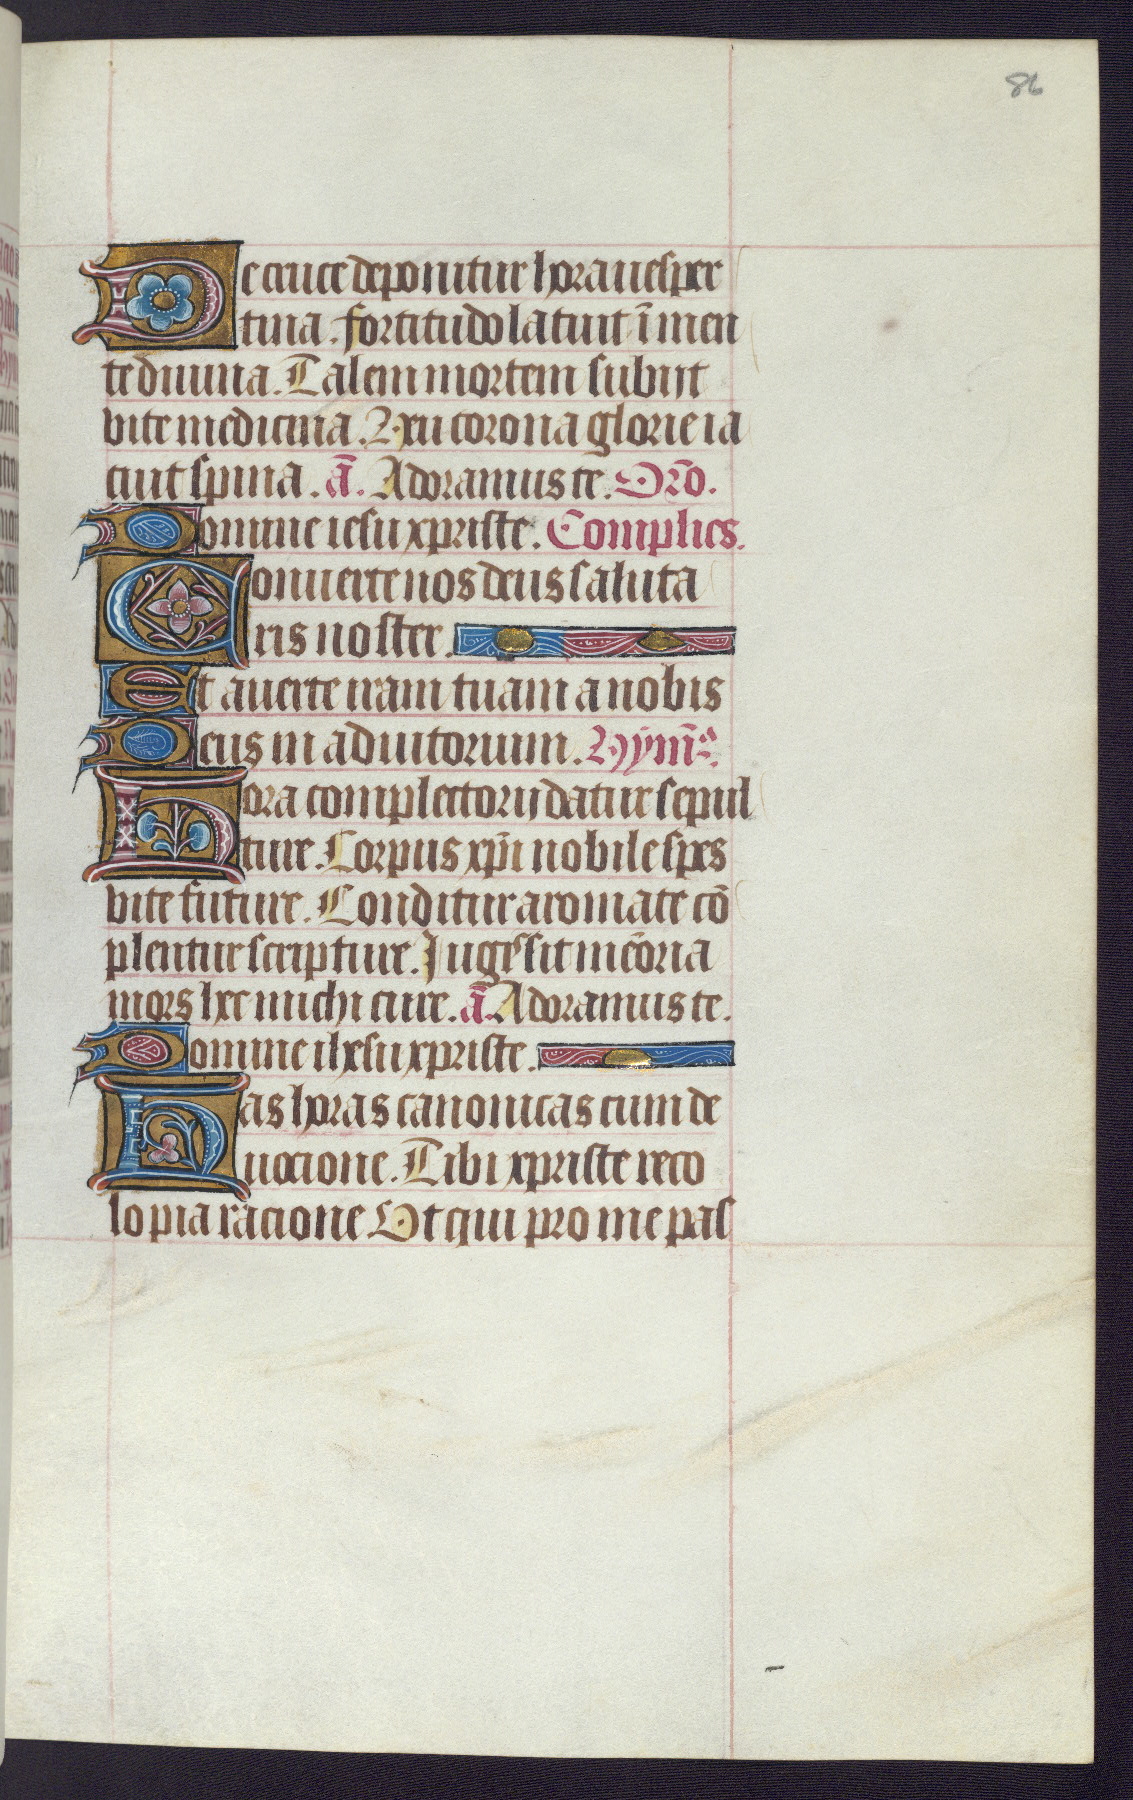 86
De cruce deponitur hora uesper
tina. fortitudo latuit ī men
te diuina. Talem mortem subijt
vite medicina. Axu corona glorie ia
cuit spina. ā. Adoramus te. Orō.
Domine iesu xpriste. Complies.
Conuerte nos deus saluta
ris noster.
Et auerte iram tuam a nobis
Deus in adiutorium. Hȳmꝰ.
Hora completorij datur sepul
ture. Corpus xp̄i nobile spes
vite future. Conditur aromate cō
plentur scripture. Jugis sit mēoria
mors hec michi cure. ā. Adoramus te.
Domine ihesu xpriste.
Has horas canonicas cum de
uocione. Tibi xpriste reco
lo pia racione Ut qui pro me pas